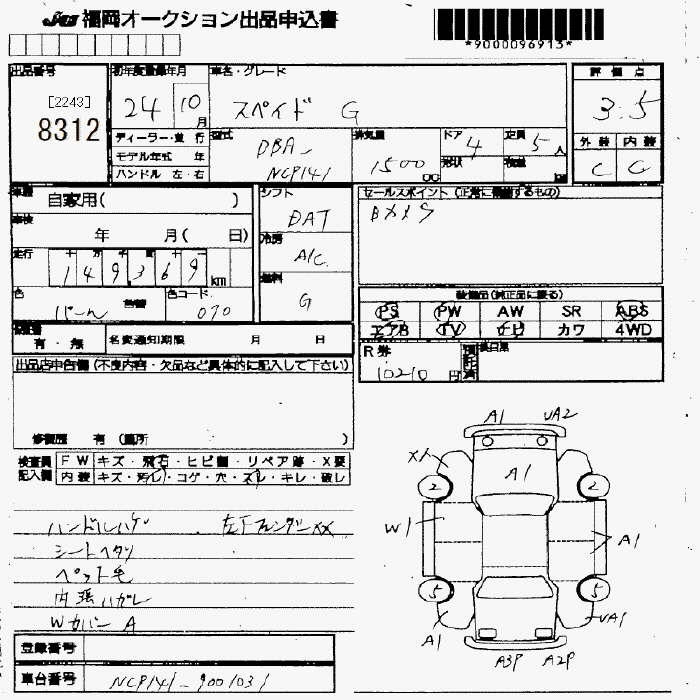 JU 福岡オークション出品申込書
*9000096913*
出品番号
[2243]
8312
初年度登録年月
24 10 月
車名・グレード
スペイド G
評価点
3.5
ディーラー・並行
モデル年式 年
ハンドル 左・右
型式
DBA-
NCP141
排気量
1500 cc
ドア
4
形状
定員
5人
積載
kg
外装 内装
C C
車歴
自家用( )
車検
年 月( 日)
走行
149,369 km
色
色替
色コード
070
シフト
DAT
冷房
A/C
燃料
G
セールスポイント (正常に機能するもの)
装備品(純正品に限る)
PS PW AW SR ABS
エアB TV ナビ カワ 4WD
有・無
名変通知期限 月 日
R券
10210 円
出品店申告欄 (不良内容・欠品など具体的に記入して下さい)
修復歴 有 (箇所 )
検査員
記入欄
FW キズ・飛石・ヒビ割・リペア跡・X要
内装 キズ・汚レ・コゲ・穴・スレ・キレ・破レ
ハンドルハゲ 左Fフェンダーxx
シートヘタリ
ペット毛
内張ハガレ
Wカバー A
登録番号
車台番号
NCP141-9001031
A1 UA2
XX
A1
2 2
W1
A1
5 5
A1 UA1
A3P A2P